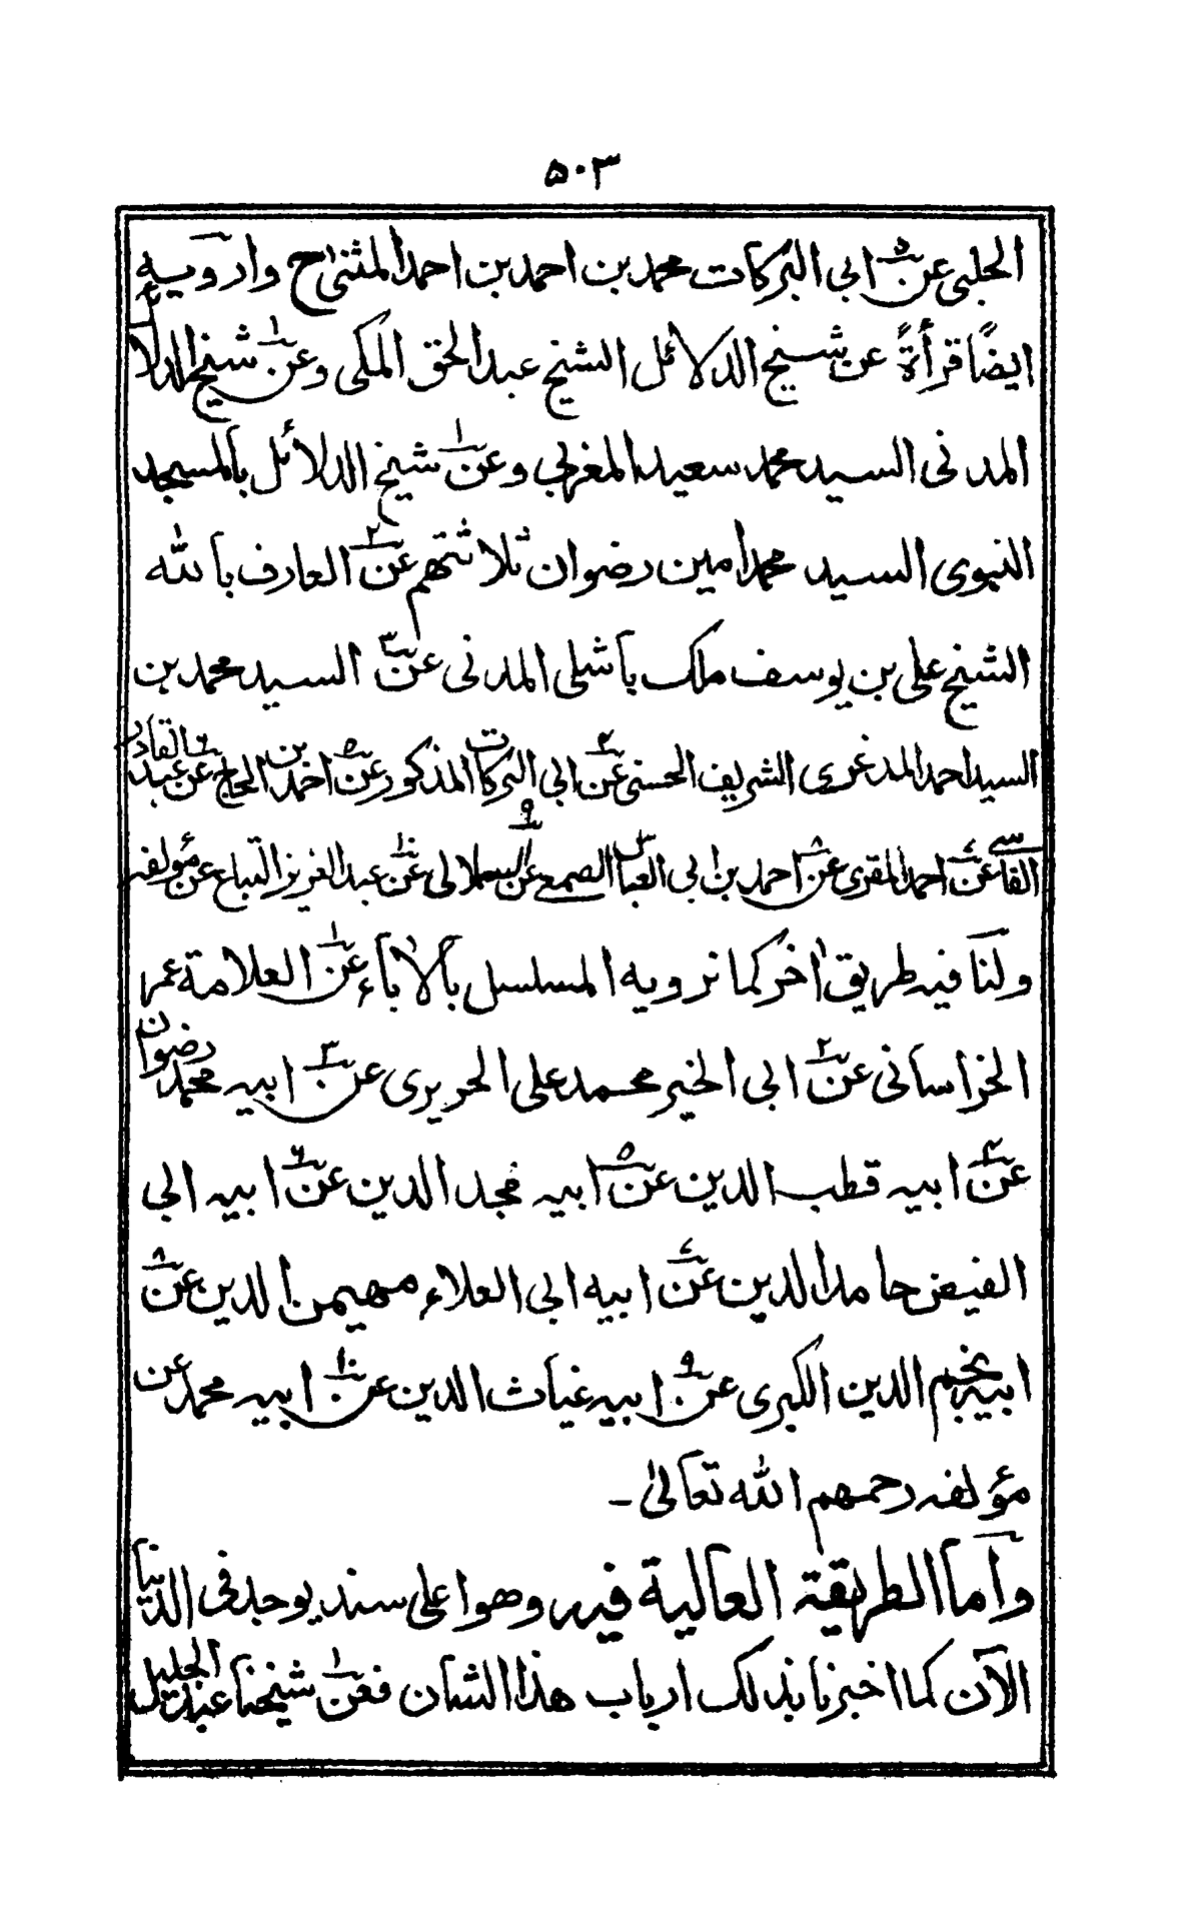 ۵۰۳
الحلبی عن ۵ ابی البرکات محمد بن احمد بن احمد المثنیٰ ح وارویه
ایضًا قرأةً عن شیخ الدلائل الشیخ عبد الحق المکی وعن ۱ شیخ الدلائل
المدنی السید محمد سعید المغربی وعن ۱ شیخ الدلائل بالمسجد
النبوی السید محمد امین رضوان ثلاثتهم عن ۲ العارف بالله
الشیخ علی بن یوسف ملک باشلی المدنی عن ۳ السید محمد بن
السید احمد المدغری الشریف الحسنی عن ۴ ابی البرکات المذکور عن ۵ احمد بن الحاج عن ۶ عبد القادر
الفاسی عن ۷ احمد المقری عن ۸ احمد بن ابی العباس الصمعی عن ۹ السملالی عن ۱۰ عبد العزیز التباع عن مؤلفه
ولنا فیه طریق اٰخر کما نرویه المسلسل بالاٰباء عن ۱ العلامة عمر
الخراسانی عن ۲ ابی الخیر محمد علی الحریری عن ۳ ابیه محمد رضوان
عن ۴ ابیه قطب الدین عن ۵ ابیه مجد الدین عن ۶ ابیه ابی
الفیض حامد الدین عن ۷ ابیه ابی العلاء مهیمن الدین عن ۸
ابیه نجم الدین الکبری عن ۹ ابیه غیاث الدین عن ۱۰ ابیه محمد عن
مؤلفه رحمهم الله تعالیٰ ۔
واما الطریقة العالیة فیه وهو اعلی سند یوجد فی الدنیا
الآن کما اخبرنا بذلک ارباب هذا الشان فعن ۱ شیخنا عبد الجلیل